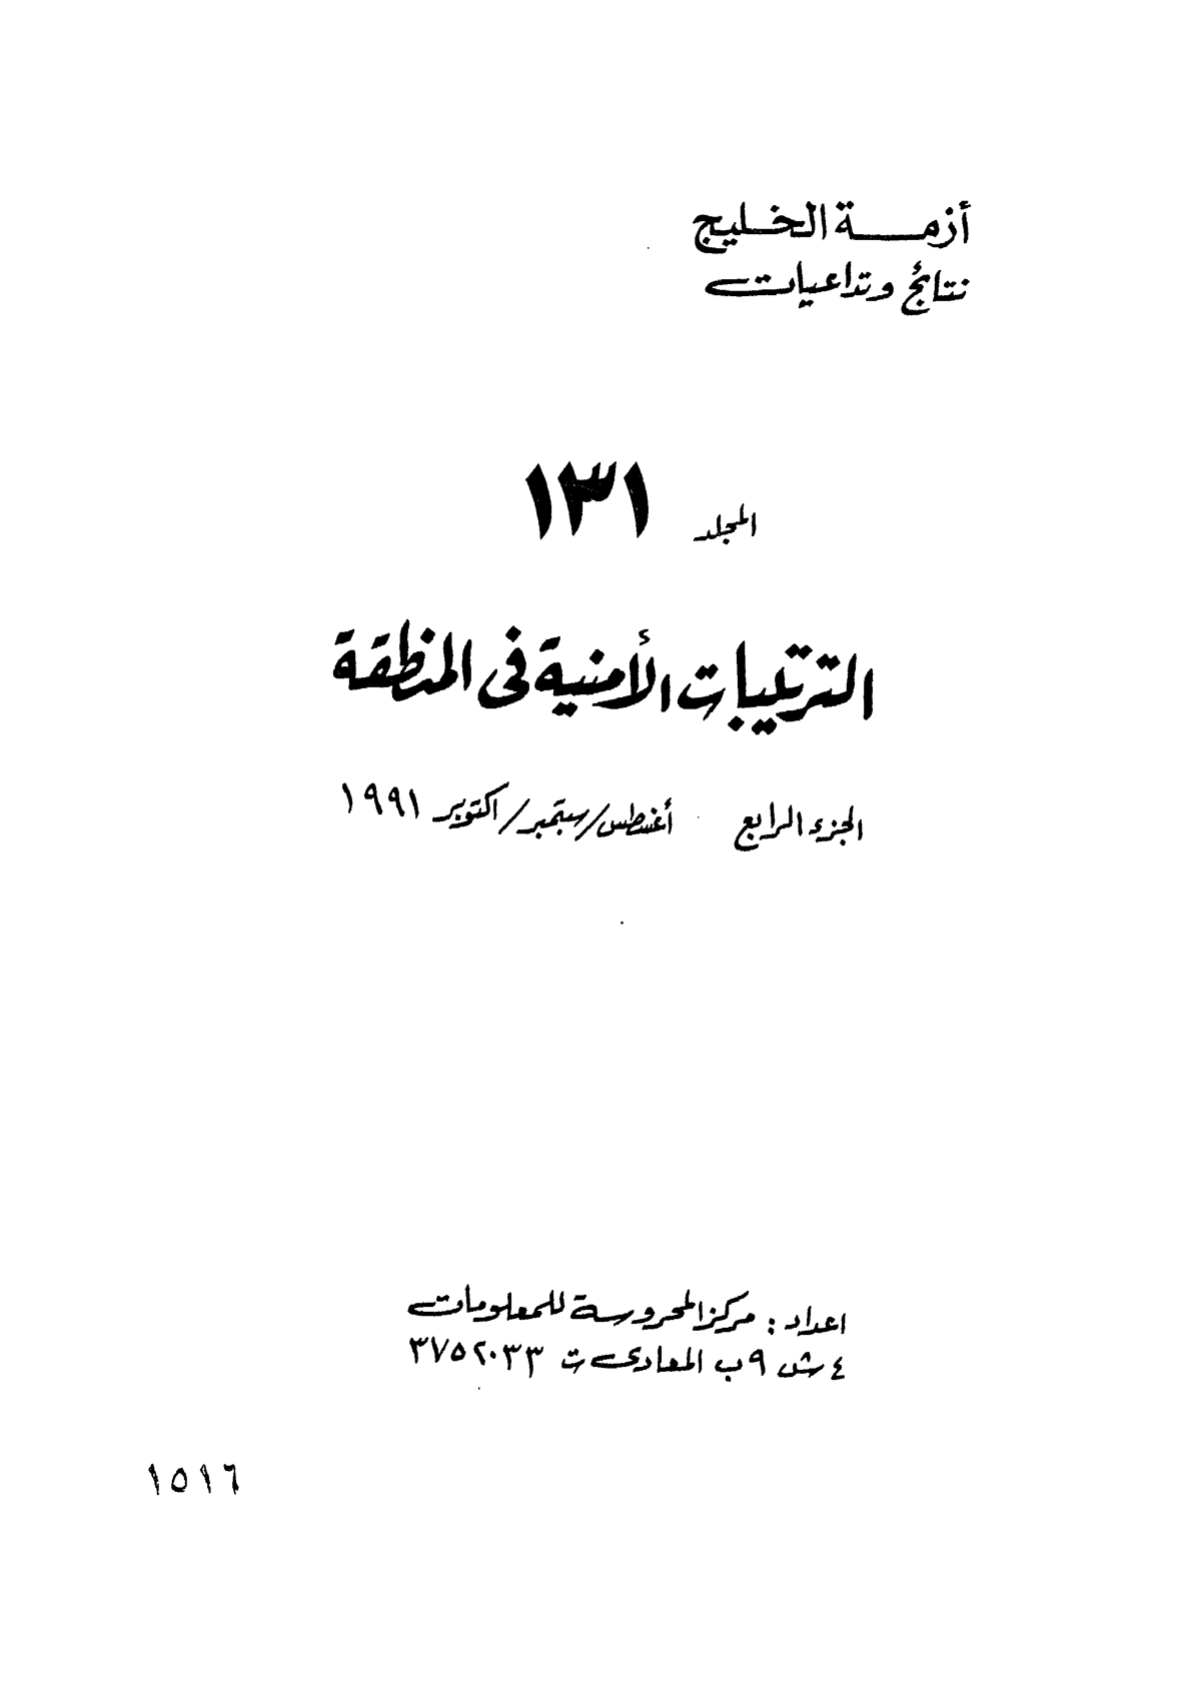 أزمة الخليج
نتائج وتداعيات
المجلد ١٣١
الترتيبات الأمنية فى المنطقة
الجزء الرابع أغسطس/سبتمبر/اكتوبر ١٩٩١
اعداد : مركز المحروسة للمعلومات
٤ ش ٩ ب المعادى ت ٣٧٥٢٠٣٣
١٥١٦